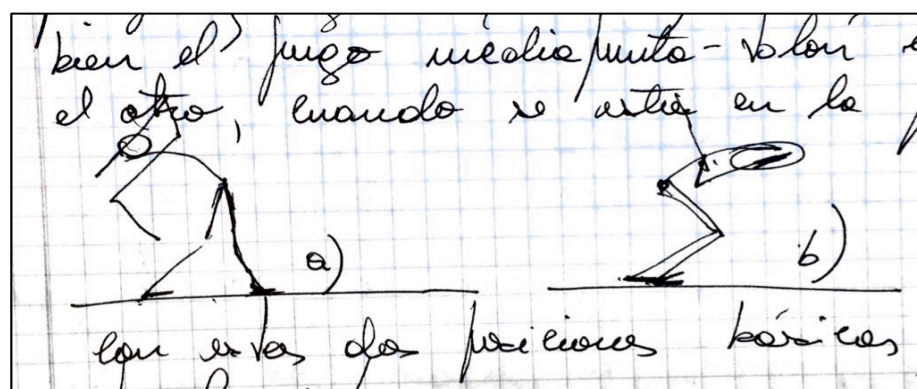 bien el juego mediapunta-talón
el otro, cuando se estia en la
a)
b)
con estas dos posiciones básicas